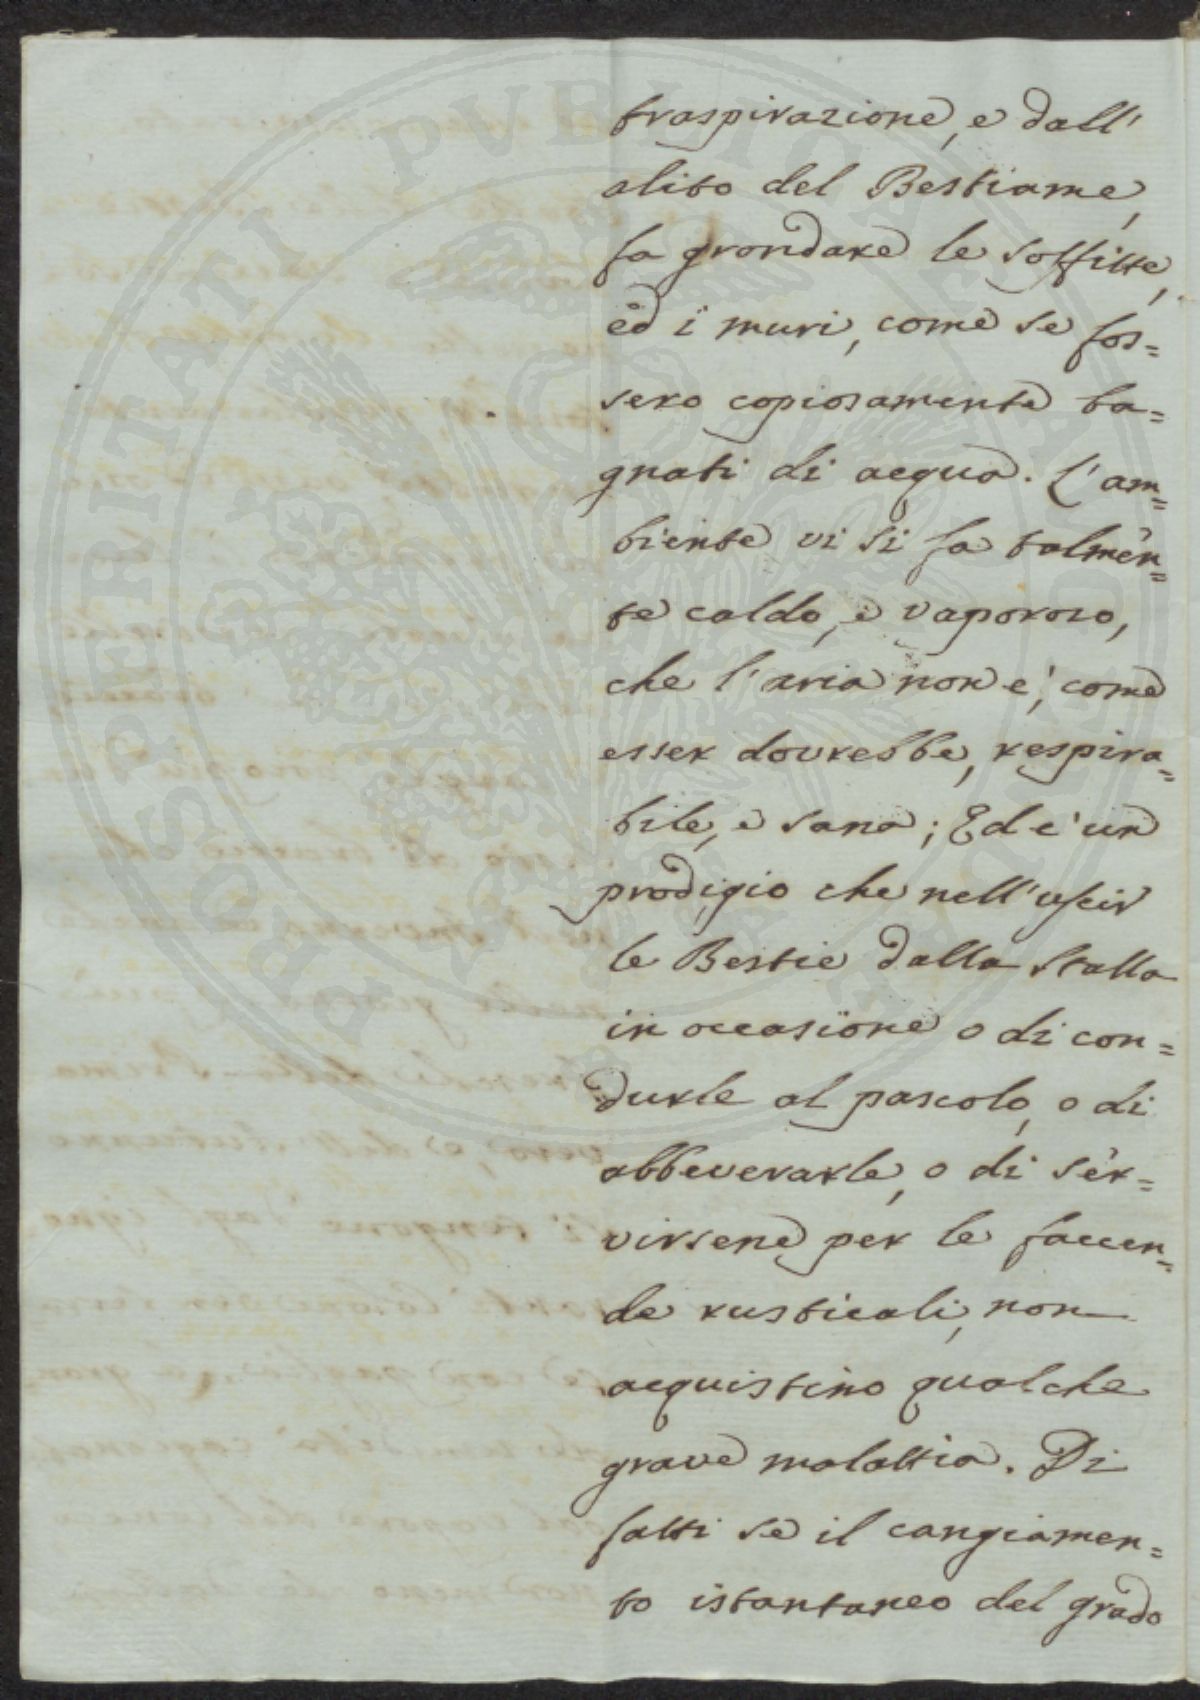 traspirazione, e dall'
alito del Bestiame,
fa grondare le soffitte,
ed i muri, come se fos=
sero copiosamente ba=
gnati di acqua. L'am=
biente vi si fa talmen=
te caldo, e vaporoso,
che l'aria non e', come
esser dovrebbe, respira=
bile, e sana; Ed e' un
prodigio che nell'uscir
le Bestie dalla Stalla
in occasione o di con=
durle al pascolo, o di
abbeverarle, o di ser=
virsene per le faccen=
de rusticali, non
acquistino qualche
grave malattia. Di
fatti se il cangiamen=
to istantaneo del grado
PROSPERITATI PVBLICAE AVGENDAE